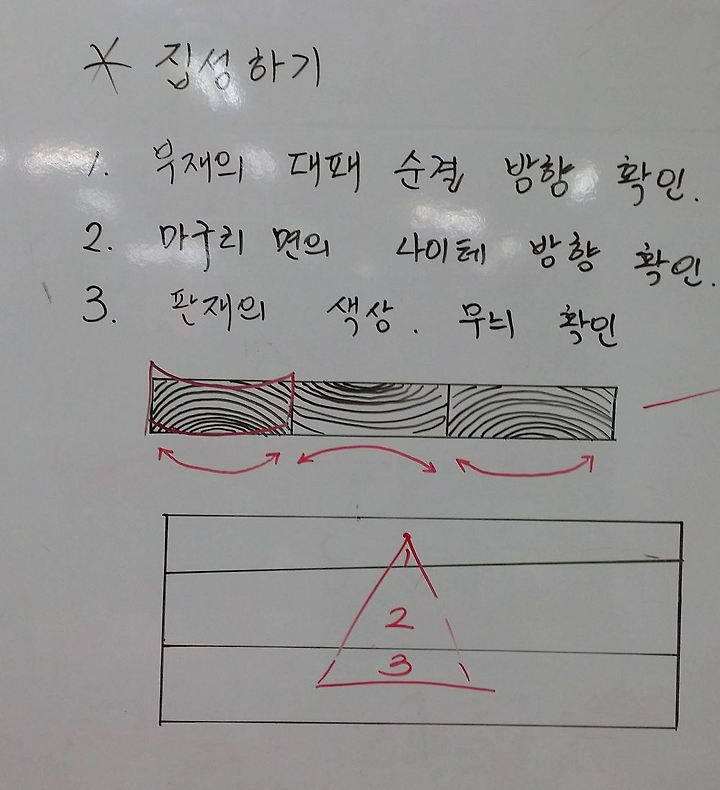 * 집성하기
1. 부재의 대패 순결 방향 확인.
2. 마구리 면의 나이테 방향 확인.
3. 판재의 색상. 무늬 확인
1
2
3